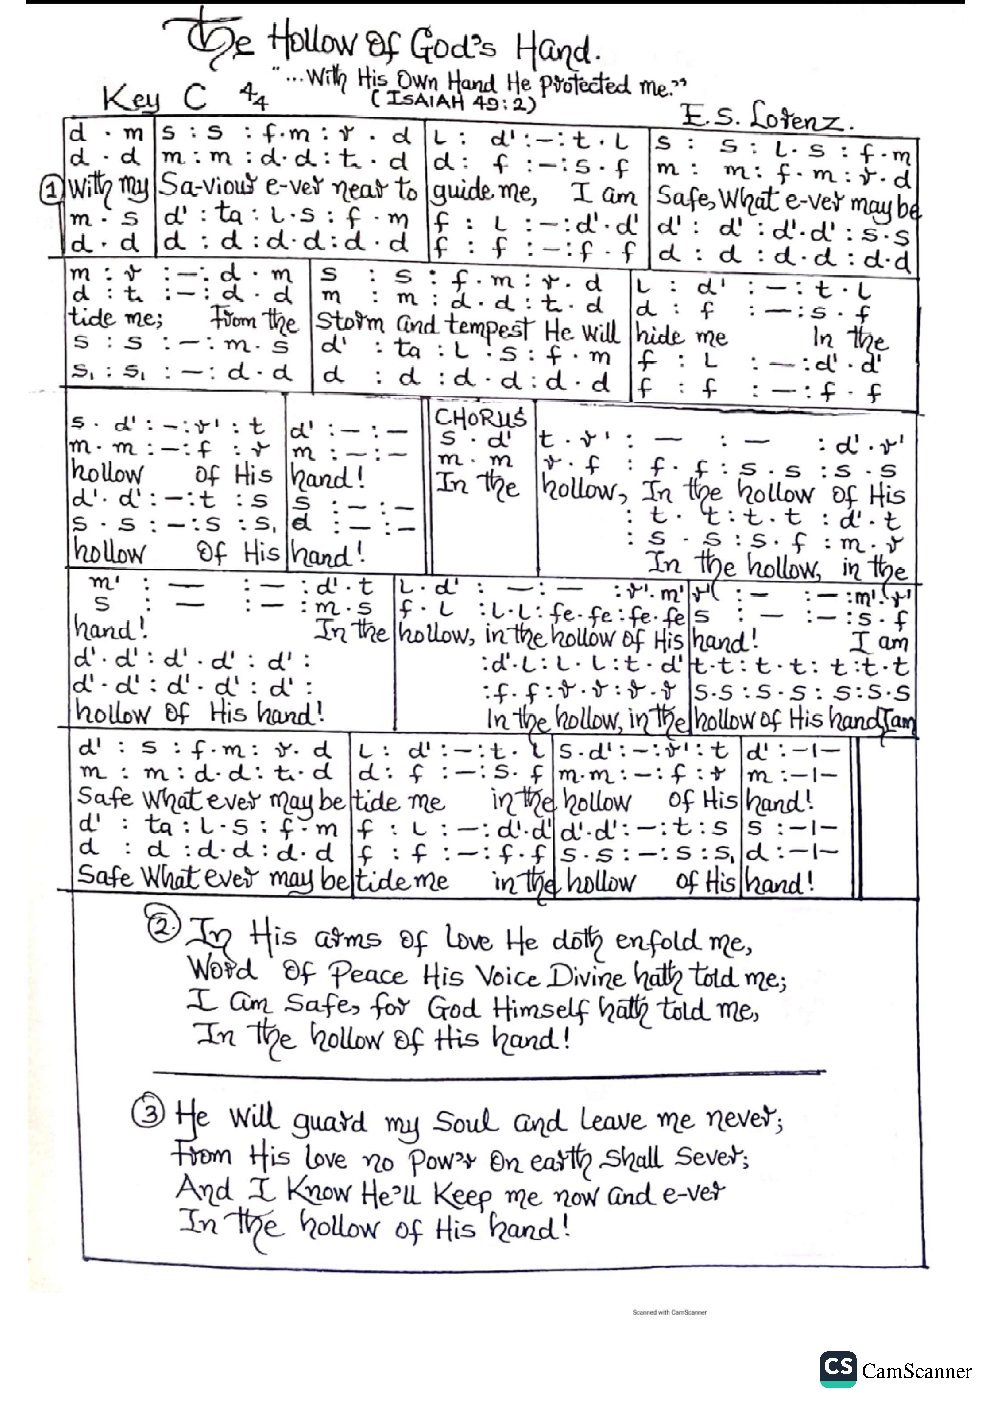 The Hollow Of God's Hand.
"...With His Own Hand He Protected me."
(ISAIAH 49:2)
Key C 4/4
E.S. Lorenz.
d . m | s : s : f.m : r . d | L : d' : – : t . L | s : s : L.s : f.m
d . d | m : m : d.d : t. . d | d : f : – : s . f | m : m : f.m : r.d
① With my | Sa-viour e-ver near to | guide me, I am | Safe, What e-ver may be
m . s | d' : ta : L.s : f.m | f : L : – : d'.d' | d' : d' : d'.d' : s.s
d . d | d : d : d.d : d.d | f : f : – : f.f | d : d : d.d : d.d
m : r : – : d . m | s : s : f.m : r.d | L : d' : – : t.L
d : t. : – : d . d | m : m : d.d : t.d | d : f : – : s.f
tide me; From the | Storm and tempest He will | hide me In the
s : s : – : m . s | d' : ta : L.s : f.m | f : L : – : d'.d'
s₁ : s₁ : – : d . d | d : d : d.d : d.d | f : f : – : f.f
CHORUS
s . d' : – : r' : t | d' : – : – | s . d' | t . r' : – : – : d'.r'
m . m : – : f : r | m : – : – | m . m | r . f : f.f : s.s : s.s
hollow of His | hand! | In the | hollow, In the hollow of His
d'.d' : – : t : s | s : – : – | : t . t : t.t : d'.t
s . s : – : s : s₁ | d : – : – | : s . s : s.f : m.r
hollow Of His | hand! | In the hollow, in the
m' : – : – : d'.t | L.d' : – : – : r'.m' | r' : – : – : m'.r'
s : – : – : m.s | f.L : L.L : fe.fe : fe.fe | s : – : – : s.f
hand! In the | hollow, in the hollow of His | hand! I am
d'.d' : d'.d' : d' : | : d'.L : L.L : t.d' | t.t : t.t : t : t.t
d'.d' : d'.d' : d' : | : f.f : r.r : r.r | s.s : s.s : s : s.s
hollow Of His hand! | In the hollow, in the | hollow of His hand I am
d' : s : f.m : r.d | L : d' : – : t.L | s.d' : – : r' : t | d' : – | –
m : m : d.d : t.d | d : f : – : s.f | m.m : – : f : r | m : – | –
Safe What ever may be | tide me in the | hollow of His | hand!
d' : ta : L.s : f.m | f : L : – : d'.d' | d'.d' : – : t : s | s : – | –
d : d : d.d : d.d | f : f : – : f.f | s.s : – : s : s₁ | d : – | –
Safe What ever may be | tide me in the | hollow of His | hand!
② In His arms of love He doth enfold me,
Word Of Peace His Voice Divine hath told me;
I am Safe, for God Himself hath told me,
In the hollow Of His hand!
③ He will guard my Soul and Leave me never;
From His love no Pow'r On earth Shall Sever;
And I Know He'll Keep me now and e-ver
In The hollow of His hand!
Scanned with CamScanner
CS CamScanner